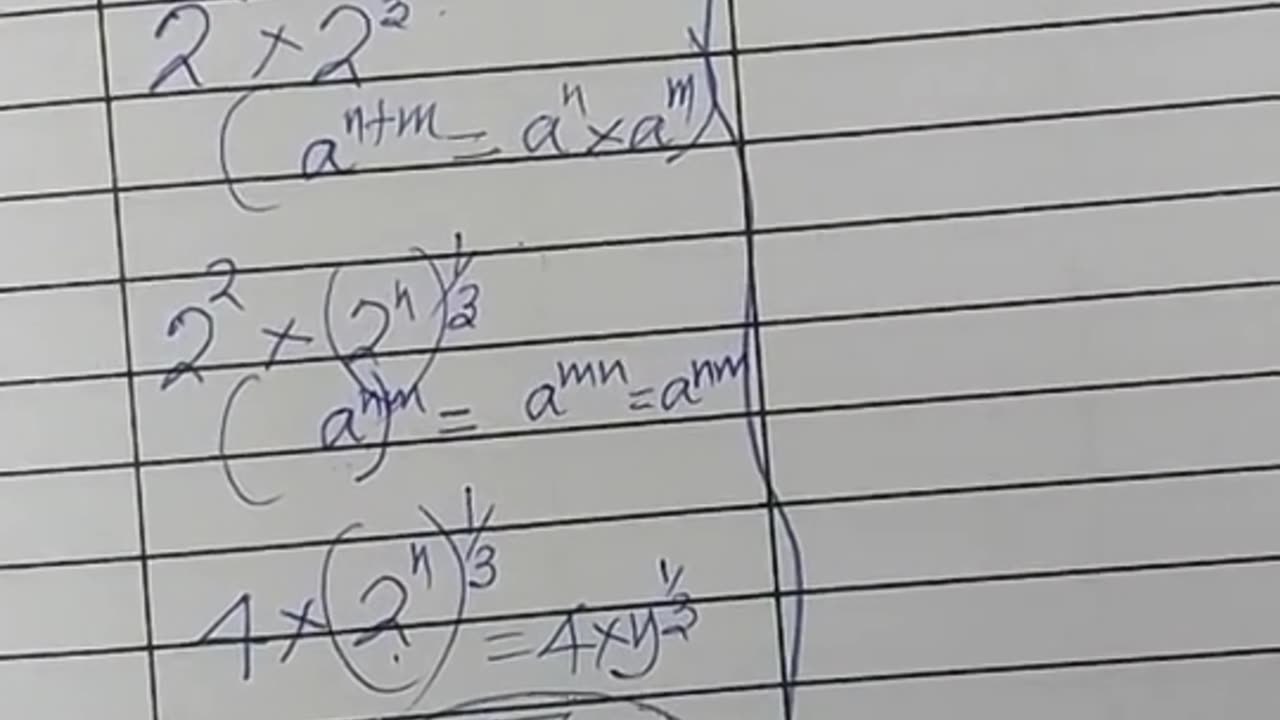 2 × 2
(a^{n+m} = a^n × a^m)
2^2 × (2^n)^{1/3}
(a^{nm}) = a^{mn} = a^{nm}
4 × (2^n)^{1/3} = 4 × y^{1/3}